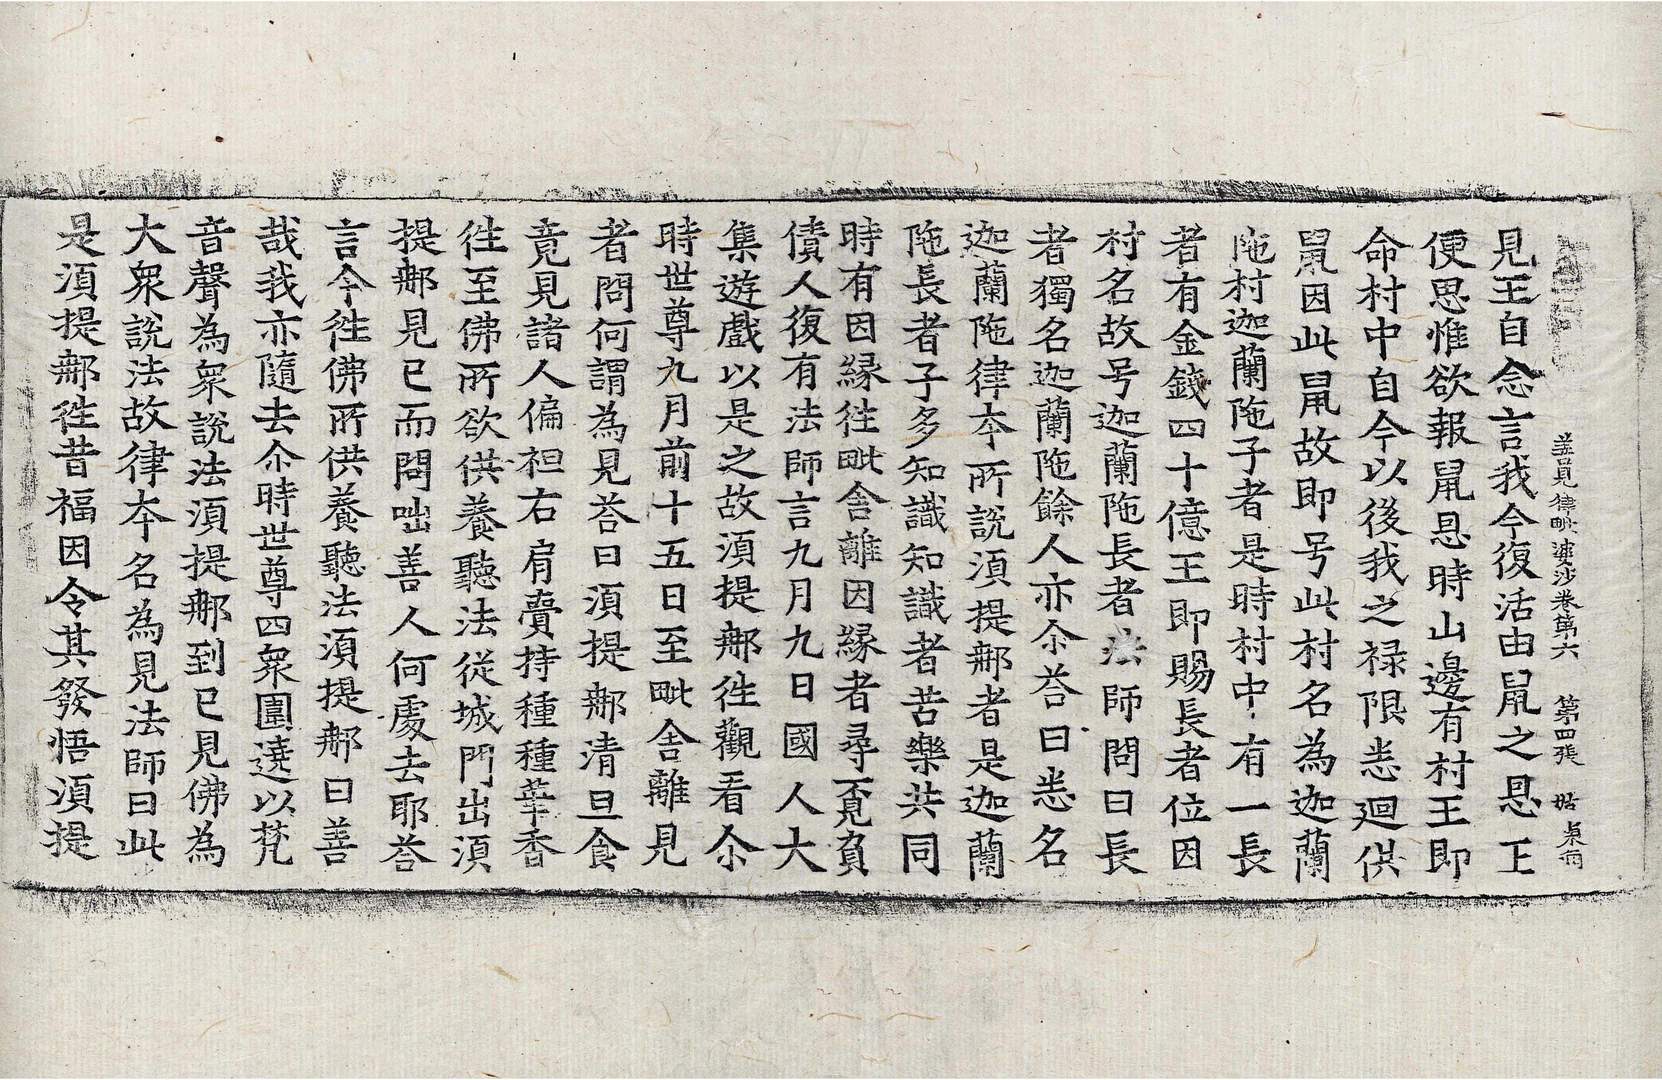 善見律毗婆沙卷第六 第四張 姑
見王自念言我今復活由鼠之恩王
便思惟欲報鼠恩時山邊有村王即
命村中自今以後我之禄限悉迴供
鼠因此鼠故即号此村名為迦蘭
陁村迦蘭陁子者是時村中有一長
者有金錢四十億王即賜長者位因
村名故号迦蘭陁長者法師問曰長
者獨名迦蘭陁餘人亦尒荅曰悉名
迦蘭陁律夲所說湏提𨚗者是迦蘭
陁長者子多知識知識者苦樂共同
時有因縁徃毗舍離因縁者尋覔負
債人復有法師言九月九日國人大
集遊戲以是之故湏提𨚗徃觀看尒
時世尊九月前十五日至毗舍離見
者問何謂為見荅曰湏提𨚗清旦食
竟見諸人偏袒右肩賷持種種華香
徃至佛所欲供養聽法從城門出湏
提𨚗見已而問咄善人何處去耶荅
言今徃佛所供養聽法湏提𨚗曰善
哉我亦隨去尒時世尊四衆圍遶以梵
音聲為衆說法湏提𨚗到已見佛為
大衆說法故律夲名為見法師曰此
是湏提𨚗徃昔福因令其發悟湏提